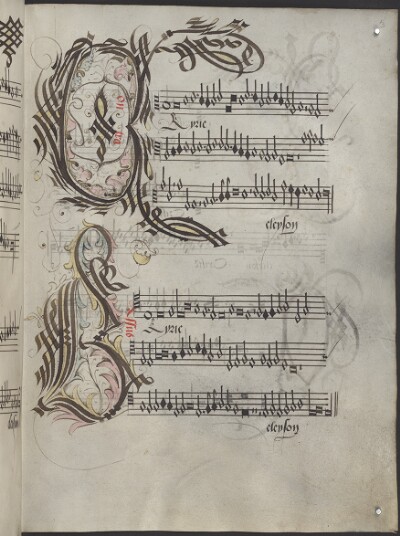 Contra
Kyrie
eleyson
Bassus
Kyrie
eleyson